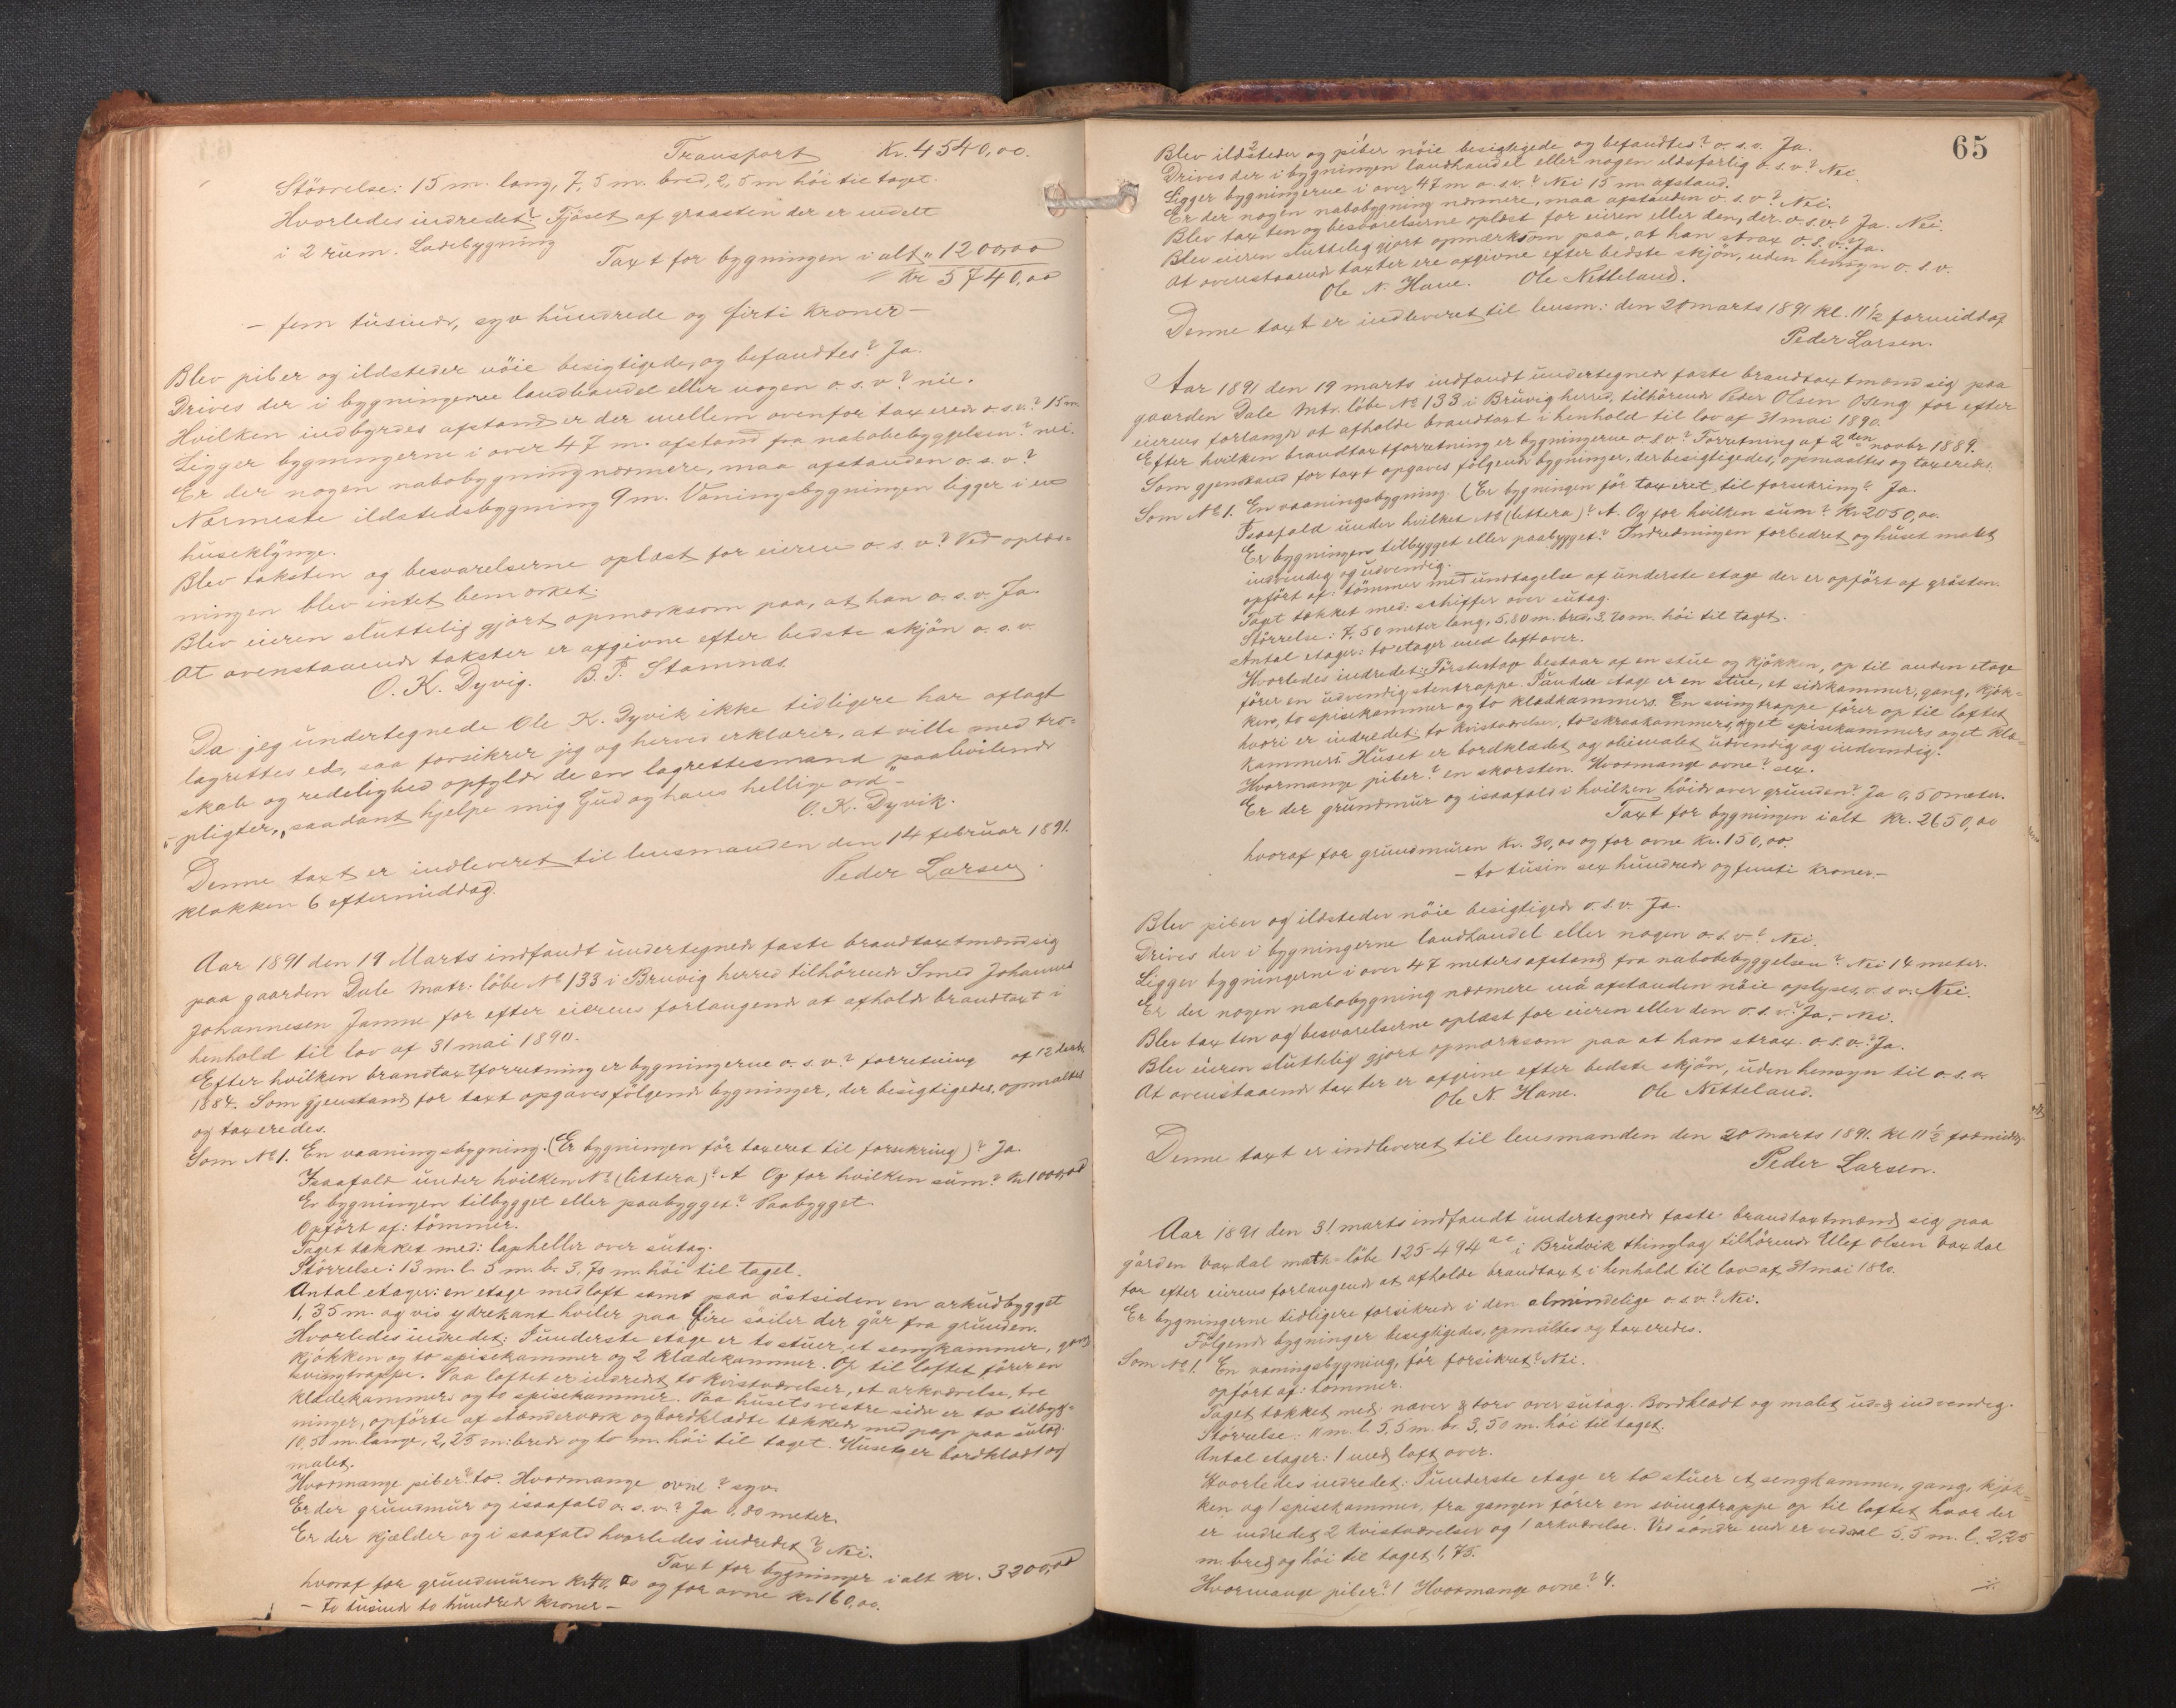 Transport Kr. 4540,00.
Störrelse: 15 m. lang, 7,5 m. bred, 2,5 m höi til taget.
Hvorledes indredet? Fjöset af graasten der er indelt
i 2 rum. Ladebygning
Taxt for bygningen i alt " 1200,00
Kr 5740,00
– fem tusinde, syv hundrede og firti kroner –
Blev piber og ildsteder nöie besigtigede, og befandtes? Ja.
Drives der i bygningerne landhandel eller nogen o. s. v? nie.
Hvilken indbyrdes afstand er der mellem ovenfor taxerede o. s. v.? 15 m
Ligger bygningerne i over 47 m. afstand fra nabobebyggelsen? nei.
Er der nogen nabobygning nærmere, maa afstanden o. s. v?
Nærmeste ildstedsbygning 9 m. Vaningsbygningen ligger i en
huseklynge.
Blev taksten og besvarelserne oplæst for eieren o. s. v? Ved oplæs=
ningen blev intet bemærket.
Blev eieren sluttelig gjort opmærksom paa, at han o. s. v. Ja.
At ovenstaaende takster er afgivne efter bedste skjön o. s. v.
O. K. Dyvig. B. T. Stamnæs.
Da jeg undertegnede Ole K. Dyvik ikke tidligere har aflagt
lagrettes ed, saa forsikrer jeg og herved erklærer, at ville med tro=
skab og redelighed opfylde de en lagrettesmand paahvilende
pligter, "saadant hjelpe mig Gud og hans hellige ord" –
O. K. Dyvik.
Denne taxt er indleveret til lensmanden den 14 februar 1891.
klokken 6 eftermiddag.
Peder Larsen
Aar 1891 den 19 Marts indfandt undertegnede faste brandtaxtmænd sig
paa gaarden Dale Matr: löbe No 133 i Bruvig herred tilhörende Smed Johannes
Johannesen Jamne for efter eierens forlangende at afholde brandtaxt i
henhold til lov af 31 mai 1890.
Efter hvilken brandtaxtforretning er bygningerne o. s. v? forretning af 12 desb
1884. Som gjenstand for taxt opgaves fölgende bygninger, der besigtigedes, opmaltes
og taxeredes.
Som No 1. En vaaningsbygning. (Er bygningen för taxeret til forsikring)? Ja.
Isaafald under hvilken No (littera)? A Og for hvilken sum? Kr 1000,00
Er bygningen tilbygget eller paabygget? Paabygget
Opfört af: tömmer.
Taget tækket med: lapheller over sutag.
Störrelse: 13 m. l. 5 m. b. 3,70 m. höi til taget.
Antal etager: en etage med loft samt paa östsiden en arkudbygget
1,35 m. og vis ydrekant hviler paa fire söiler der går fra grunden.
Hvorledes indredet: I underste etage er to stuer, et sengkammer, gang
kjökken og to spisekammer og 2 klædekammer. Op til loftet förer en
svingtrappe. Paa loftet er indredet to kvistværelser, et arkværelse, tre
klædekammer og to spisekammer. Paa husets vestre side er to tilbyg=
ninger, opförte af stænderværk og bordklædte tækkede med pap paa sutag.
10,50 m. lange, 2,25 m: brede og to m. höi til taget. Huset er bordklædt og
malet.
Hvormange piber? to. Hvormange ovne? syv.
Er der grundmur og isaafald o. s. v.? Ja 0,80 meter.
Er der kjælder og i saafald hvorledes indredet? Nei.
Taxt for bygninger i alt kr. 3200,00
hvoraf for grundmuren Kr 40,00 og for ovne Kr 160,00.
– to tusinde to hundrede kroner –
65
Blev ildsteder og piber nöie besigtigede og befandtes? o. s. v. Ja.
Drives der i bygningen landhandel eller nogen ildsfarlig o. s. v? Nei.
Ligger bygningerne i over 47 m o. s. v.? Nei 15 m. afstand.
Er der nogen nabobygning nærmere, maa afstanden o. s. v? Nei.
Blev taxten og besvarelserne oplæst for eieren eller den, der o. s. v.? Ja. Nei.
Blev eieren sluttelig gjort opmærksom paa, at han strax o. s. v.? Ja.
At ovenstaaende taxter ere afgivne efter bedste skjön, uden hensyn o. s. v.
Ole N. Hane. Ole Netteland.
Denne taxt er indleveret til lensm: den 20 marts 1891 kl. 11 1/2 formiddag
Peder Larsen.
Aar 1891 den 19 marts indfandt undertegnede faste brandtaxtmænd sig paa
gaarden Dale Mtr. löbe No 133 i Bruvig herred, tilhörende Peder Olsen Oseng for efter
eierens forlangde at afholde brandtaxt i henhold til lov af 31 mai 1890.
Efter hvilken brandtaxtforretning er bygningerne o s v? Forretning af 2den novbr 1889.
Som gjenstand for taxt opgaves fölgende bygninger, der besigtigedes, opmaaltes og taxeredes.
Som No 1. En vaaningsbygning. (Er bygningen för taxeret til forsikring? Ja.
Isaafald under hvilket No (littera)? A. Og for hvilken sum? Kr 2050,00.
Er bygningen tilbygget eller paabygget? Indredningen forbedret og huset malet
indvendig og udvendig.
opfört af: tömmer med undtagelse af underste etage der er opfört af gråsten.
Taget tækket med: schiffer over sutag.
Störrelse: 7,50 meter lang, 5,80 m. bred, 3,20 m. höi til taget.
Antal etager: to etager med loft over.
Hvorledes indredet: Förste etage bestaar af en stue og kjökken, op til anden etage
förer en udvendig stentrappe. I anden etage er en stue, et sidekammer, gang, kjök=
ken, to spisekammer og to klædkammers. En svingtrappe förer op til loftet
hvori er indredet: to kvistværelser, to skraakammers, og et spisekammers og et klæ=
kammers. Huset er bordklædet og oliemalet udvendig og indvendig.
Hvormange piber? en skorsten. Hvormange ovne? sex.
Er der grundmur og isaafald i hvilken höide over grunden? Ja 0,50 meter.
Taxt for bygningen ialt Kr. 2650,00
hvoraf for grundmuren Kr. 30,00 og for ovne Kr. 150,00.
– to tusin sex hundrede og femti kroner. –
Blev piber og ildsteder nöie besigtigede o. s. v. Ja.
Drives der i bygningerne landhandel eller nogen o. s. v? Nei.
Ligger bygningerne i over 47 meters afstand fra nabobebyggelsen? Nei 14 meter.
Er der nogen nabobygning nærmere må afstanden nöie oplyses, o. s. v: Nei.
Blev taxten og besvarelserne oplæst for eieren eller den o. s. v? Ja, – Nei.
Blev eieren sluttelig gjort opmærksom paa at han strax. o. s. v.? Ja.
At ovenstaaende taxter er afgivne efter bedste skjön, uden hensyn til o. s. v.
Ole N. Hane. Ole Netteland.
Denne taxt er indleveret til lensmanden den 20 Marts 1891. Kl 11 1/2 formiddag.
Peder Larsen.
Aar 1891 den 31 marts indfandt undertegnede faste brandtaxtmænd sig paa
gården Vaxdal matr-löbe 125-494 i Brudvik thinglag tilhörende Ellef Olsen Vaxdal
for efter eierens forlangende at afholde brandtaxt i henhold til lov af 31 mai 1890.
Er bygningerne tidligere forsikrede i den almindelige o. s. v.? Nei.
Fölgende bygninger besigtigedes, opmåltes og taxeredes.
Som No 1. En vaningsbygning, för forsikret? Nei.
opfört af: tömmer.
Taget tækket med: næver & torv over sutag. Bordklædt og malet ud- & indvendig.
Störrelse: 11 m. l. 5,5 m. br. 3,50 m. höi til taget.
Antal etager: 1 med loft over.
Hvorledes indredet: I underste etage er to stuer et sengkammer, gang, kjök=
ken og 1 spisekammer, fra gangen förer en svingtrappe op til loftet hvor der
er indredet 2 kvistværelser og 1 arkværelse. Ved söndre ende er vedsval 5.5 m. l. 2,25
m. bred og höi til taget 1,75.
Hvormange piber? 1 Hvormange ovne? 4.